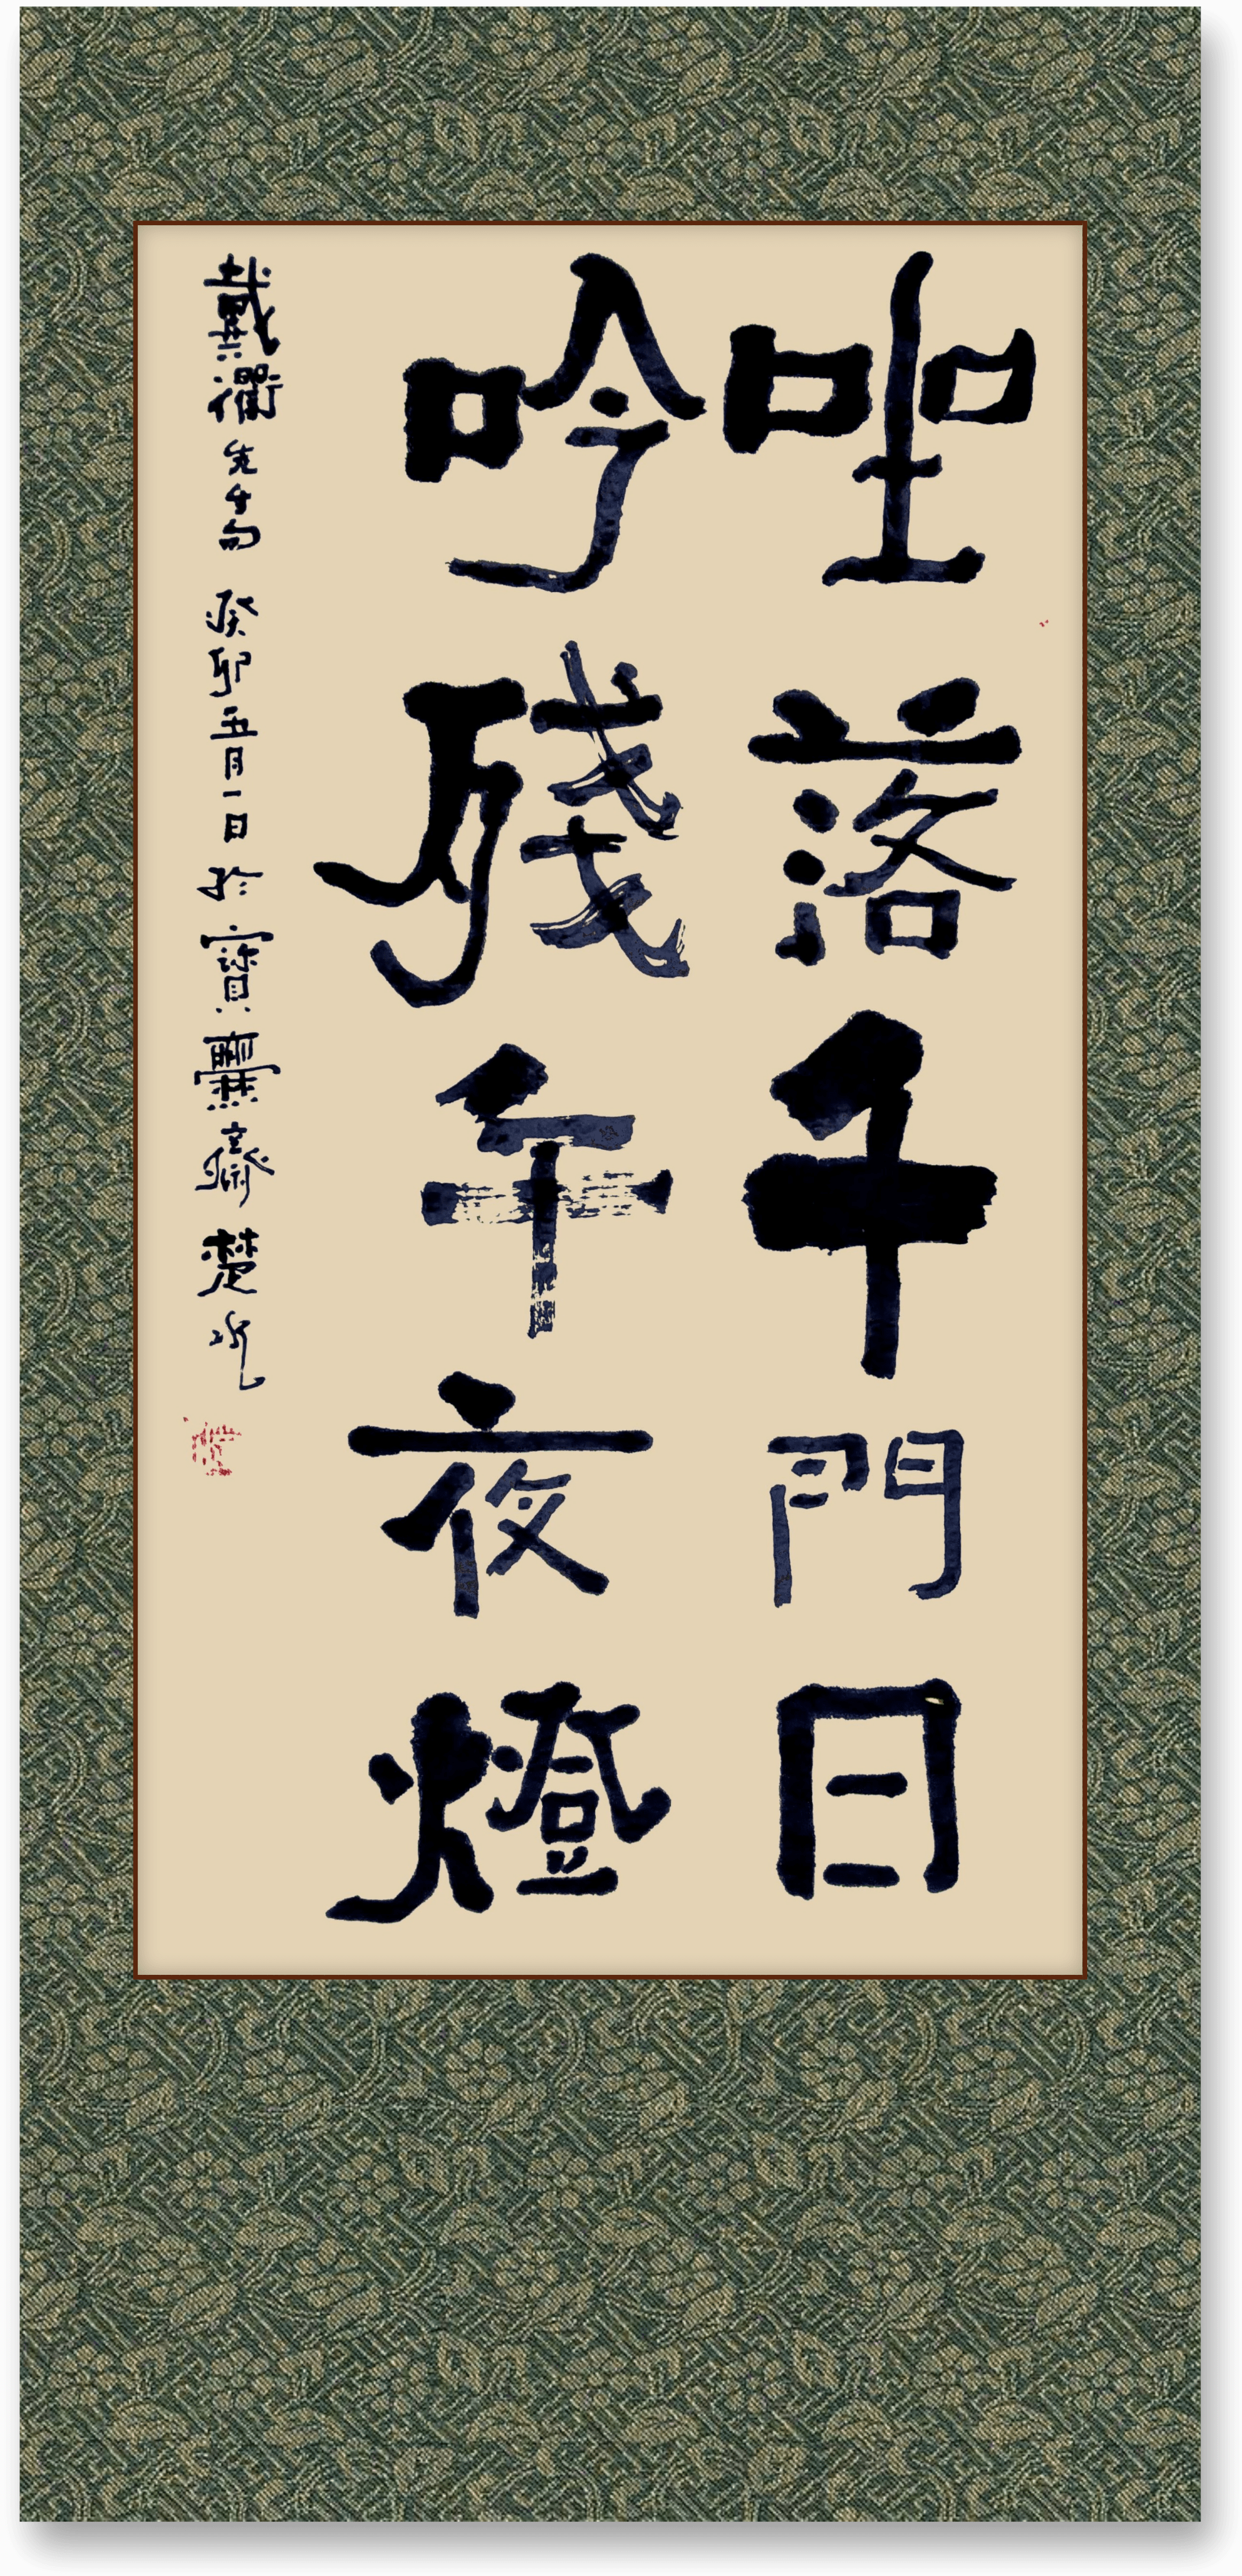 坐落千門日
吟殘午夜燈
戴衢先生句 癸卯五月一日於寶齋楚